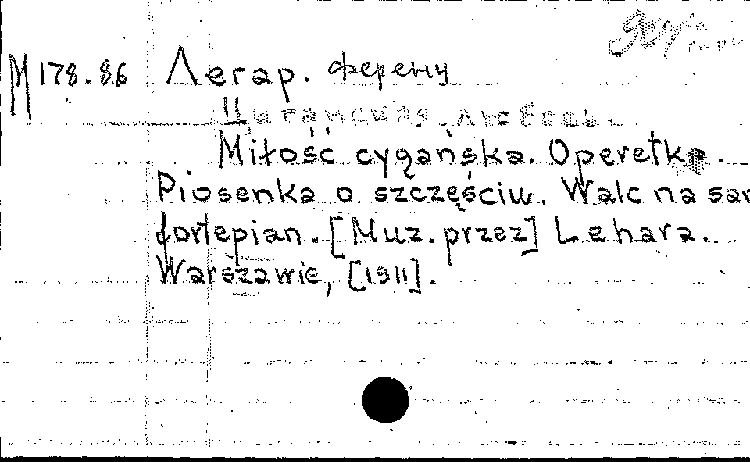 M 178.86 Легар. Ференц
Цыганская любовь.
Miłość cygańska. Operetka.
Piosenka o szczęściu. Walc na sam
fortepian. [Muz. przez] Lehara.
Warszawie, [1911].